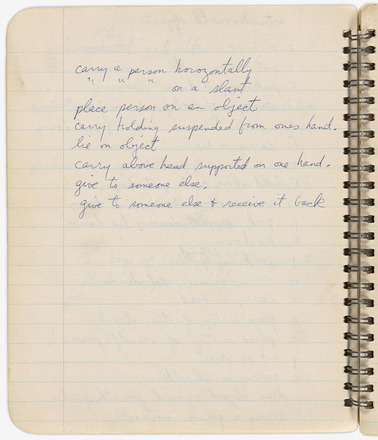 carry a person horozontally
" " " on a slant
place person on an object
carry holding suspended from ones hand.
lie on object
carry above head supported on one hand.
give to someone else.
give to someone else & receive it back